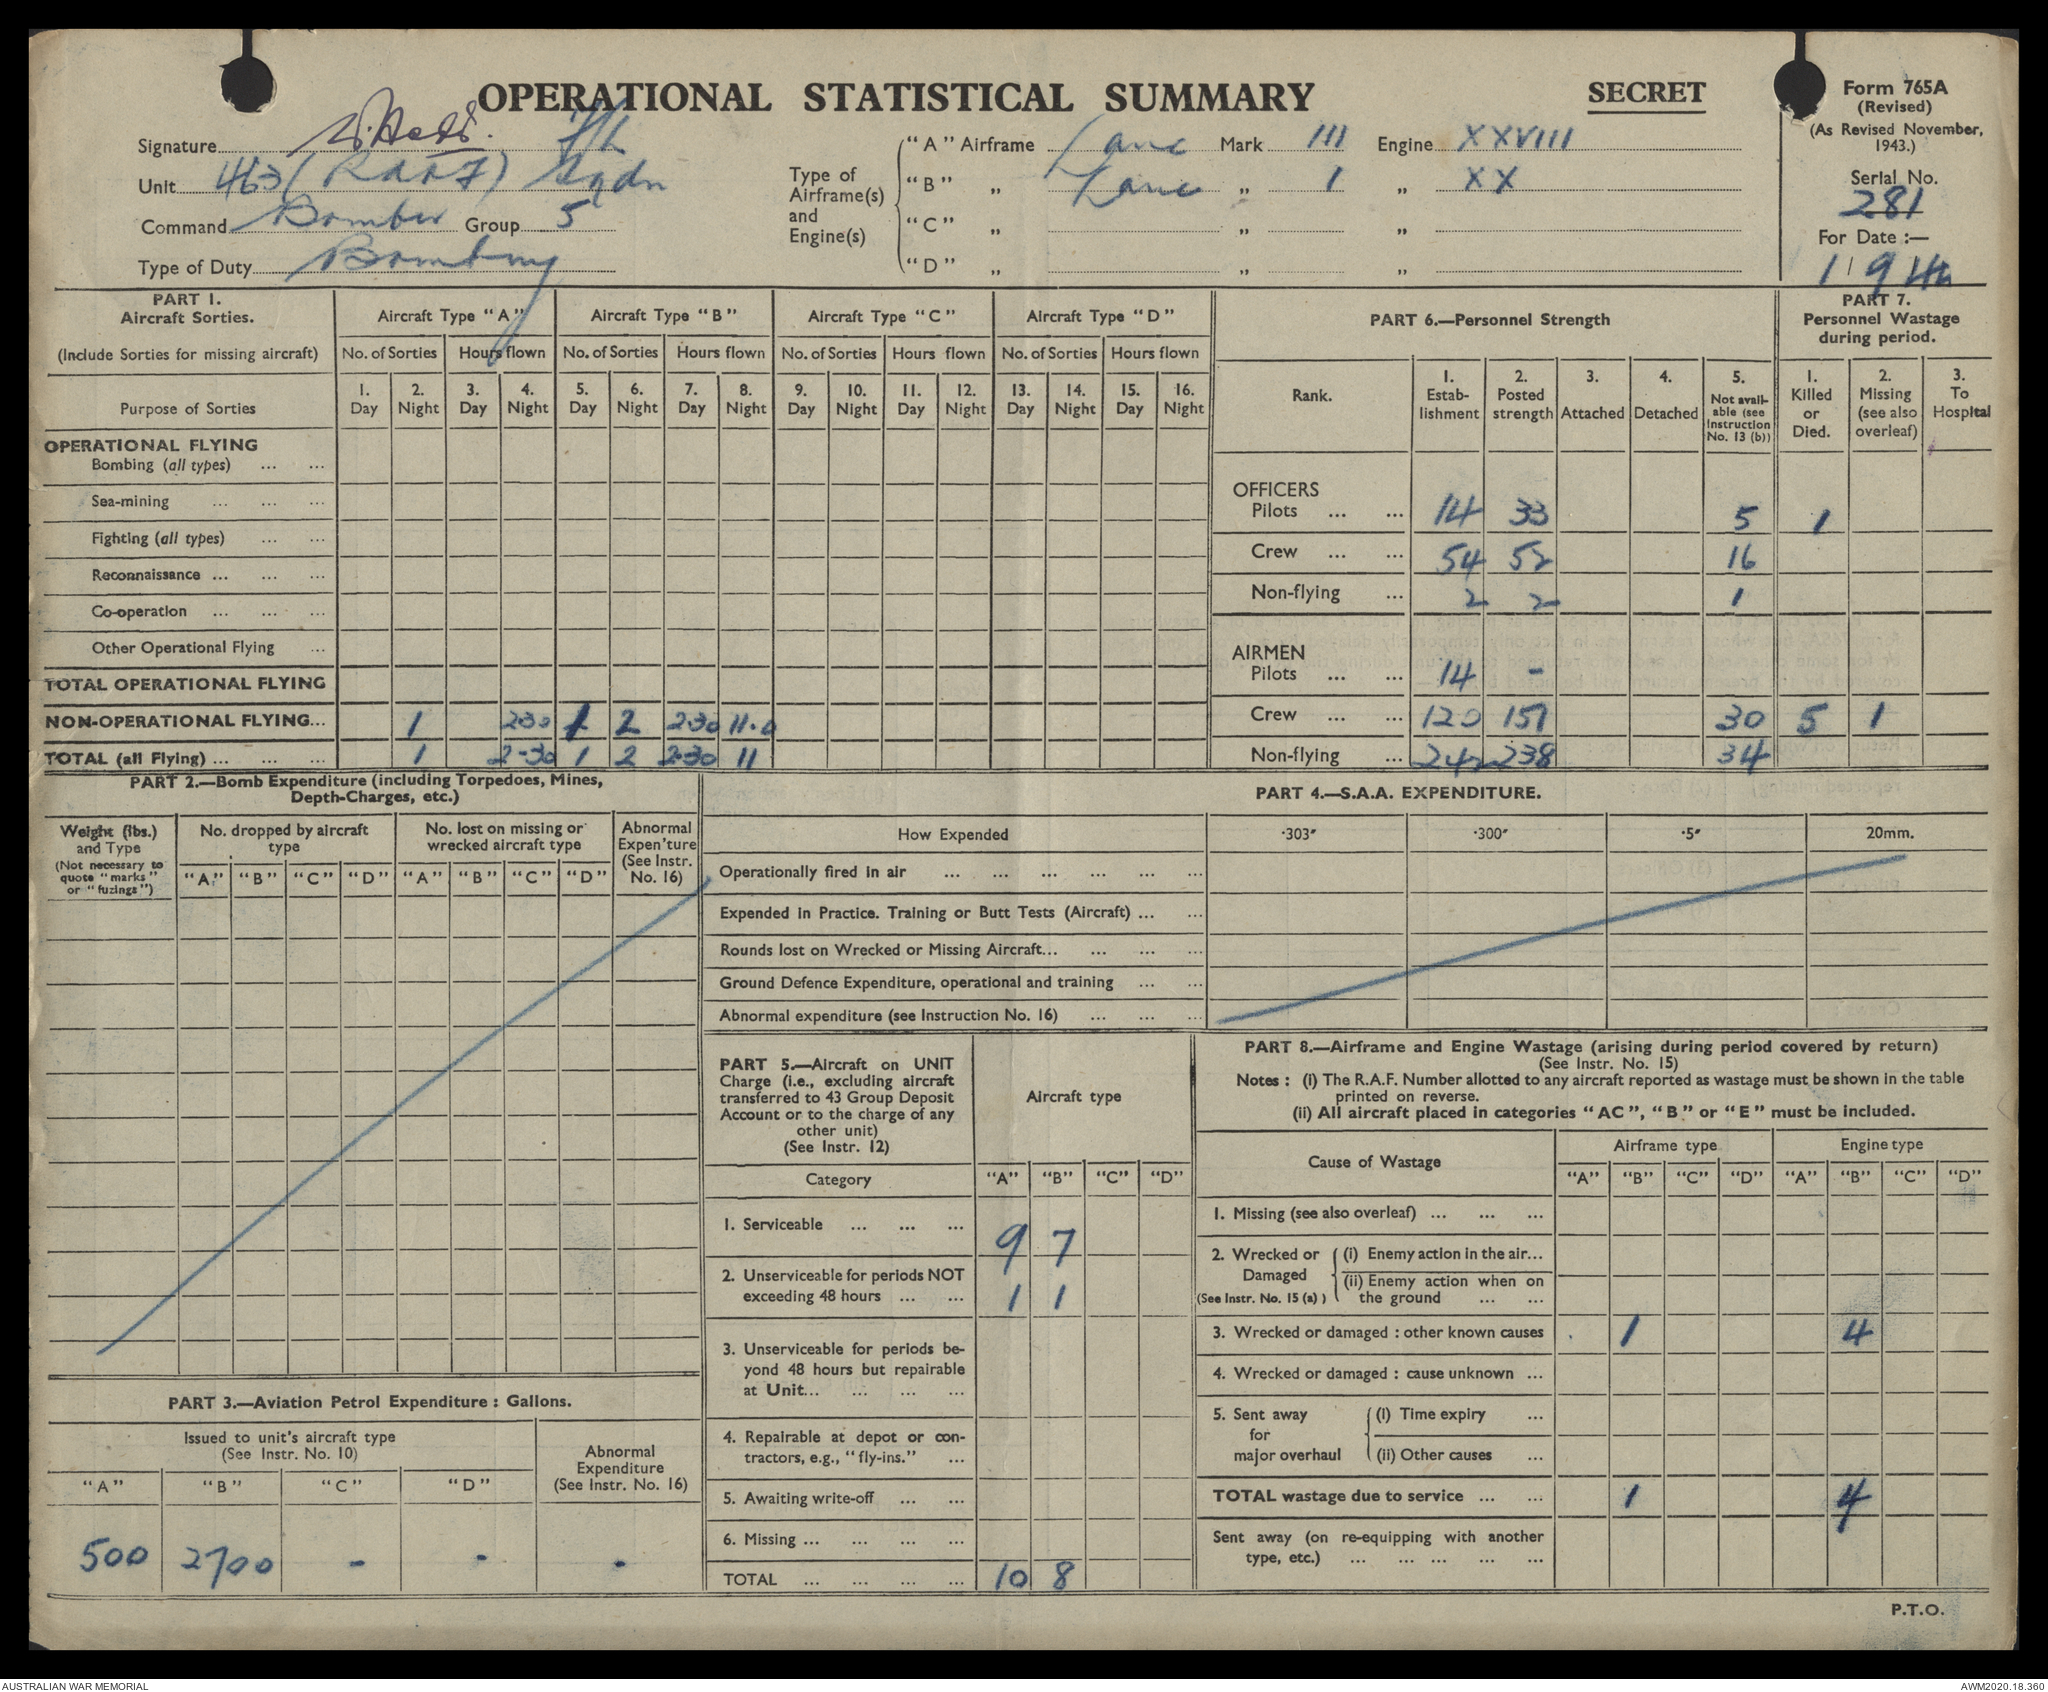 OPERATIONAL STATISTICAL SUMMARY
SECRET
Form 765A
(Revised)
(As Revised November,
1943.)
Serial No.
281
For Date :—
1 9 44
Signature F/L
Unit 463 (RAAF) Sqdn
Command Bomber Group 5
Type of Duty Bombing
Type of
Airframe(s)
and
Engine(s)
"A" Airframe Lanc Mark III Engine XXVIII
"B" „ Lanc „ 1 „ XX
"C" „ „ „
"D" „ „ „
PART 1.
Aircraft Sorties.
(Include Sorties for missing aircraft)
Aircraft Type "A" Aircraft Type "B" Aircraft Type "C" Aircraft Type "D"
No. of Sorties Hours flown No. of Sorties Hours flown No. of Sorties Hours flown No. of Sorties Hours flown
1. 2. 3. 4. 5. 6. 7. 8. 9. 10. 11. 12. 13. 14. 15. 16.
Purpose of Sorties Day Night Day Night Day Night Day Night Day Night Day Night Day Night Day Night
OPERATIONAL FLYING
Bombing (all types) ... ...
Sea-mining ... ... ...
Fighting (all types) ... ...
Reconnaissance ... ... ...
Co-operation ... ... ...
Other Operational Flying ...
TOTAL OPERATIONAL FLYING
NON-OPERATIONAL FLYING... 1 2.30 1 2 2.30 11.0
TOTAL (all Flying) ... ... ... 1 2-30 1 2 2.30 11
PART 6.—Personnel Strength
Rank.
1. Estab-lishment
2. Posted strength
3. Attached
4. Detached
5. Not avail-able (see Instruction No. 13 (b))
PART 7.
Personnel Wastage
during period.
1. Killed or Died.
2. Missing (see also overleaf)
3. To Hospital
OFFICERS
Pilots ... ... 14 33 5 1
Crew ... ... 54 52 16
Non-flying ... 2 2 1
AIRMEN
Pilots ... ... 14 -
Crew ... ... 120 151 30 5 1
Non-flying ... 242 238 34
PART 2.—Bomb Expenditure (including Torpedoes, Mines,
Depth-Charges, etc.)
Weight (lbs.)
and Type
(Not necessary to
quote "marks"
or "fuzings")
No. dropped by aircraft
type
No. lost on missing or
wrecked aircraft type
Abnormal
Expen'ture
(See Instr.
No. 16)
"A" "B" "C" "D" "A" "B" "C" "D"
PART 4.—S.A.A. EXPENDITURE.
How Expended ·303" ·300" ·5" 20mm.
Operationally fired in air ... ... ... ... ... ...
Expended in Practice. Training or Butt Tests (Aircraft) ... ...
Rounds lost on Wrecked or Missing Aircraft... ... ... ...
Ground Defence Expenditure, operational and training ... ...
Abnormal expenditure (see Instruction No. 16) ... ... ...
PART 3.—Aviation Petrol Expenditure : Gallons.
Issued to unit's aircraft type
(See Instr. No. 10)
Abnormal
Expenditure
(See Instr. No. 16)
"A" "B" "C" "D"
500 2700 - - -
PART 5.—Aircraft on UNIT
Charge (i.e., excluding aircraft
transferred to 43 Group Deposit
Account or to the charge of any
other unit)
(See Instr. 12)
Aircraft type
Category "A" "B" "C" "D"
1. Serviceable ... ... ... 9 7
2. Unserviceable for periods NOT
exceeding 48 hours ... ... 1 1
3. Unserviceable for periods be-
yond 48 hours but repairable
at Unit... ... ... ...
4. Repairable at depot or con-
tractors, e.g., "fly-ins." ...
5. Awaiting write-off ... ...
6. Missing ... ... ... ...
TOTAL ... ... ... ... 10 8
PART 8.—Airframe and Engine Wastage (arising during period covered by return)
(See Instr. No. 15)
Notes : (i) The R.A.F. Number allotted to any aircraft reported as wastage must be shown in the table
printed on reverse.
(ii) All aircraft placed in categories "AC", "B" or "E" must be included.
Cause of Wastage Airframe type Engine type
"A" "B" "C" "D" "A" "B" "C" "D"
1. Missing (see also overleaf) ... ... ...
2. Wrecked or Damaged (See Instr. No. 15 (a) )
(i) Enemy action in the air...
(ii) Enemy action when on
the ground ... ...
3. Wrecked or damaged : other known causes 1 4
4. Wrecked or damaged : cause unknown ...
5. Sent away for major overhaul
(i) Time expiry ...
(ii) Other causes ...
TOTAL wastage due to service ... ... 1 4
Sent away (on re-equipping with another
type, etc.) ... ... ... ... ...
P.T.O.
AUSTRALIAN WAR MEMORIAL
AWM2020.18.360